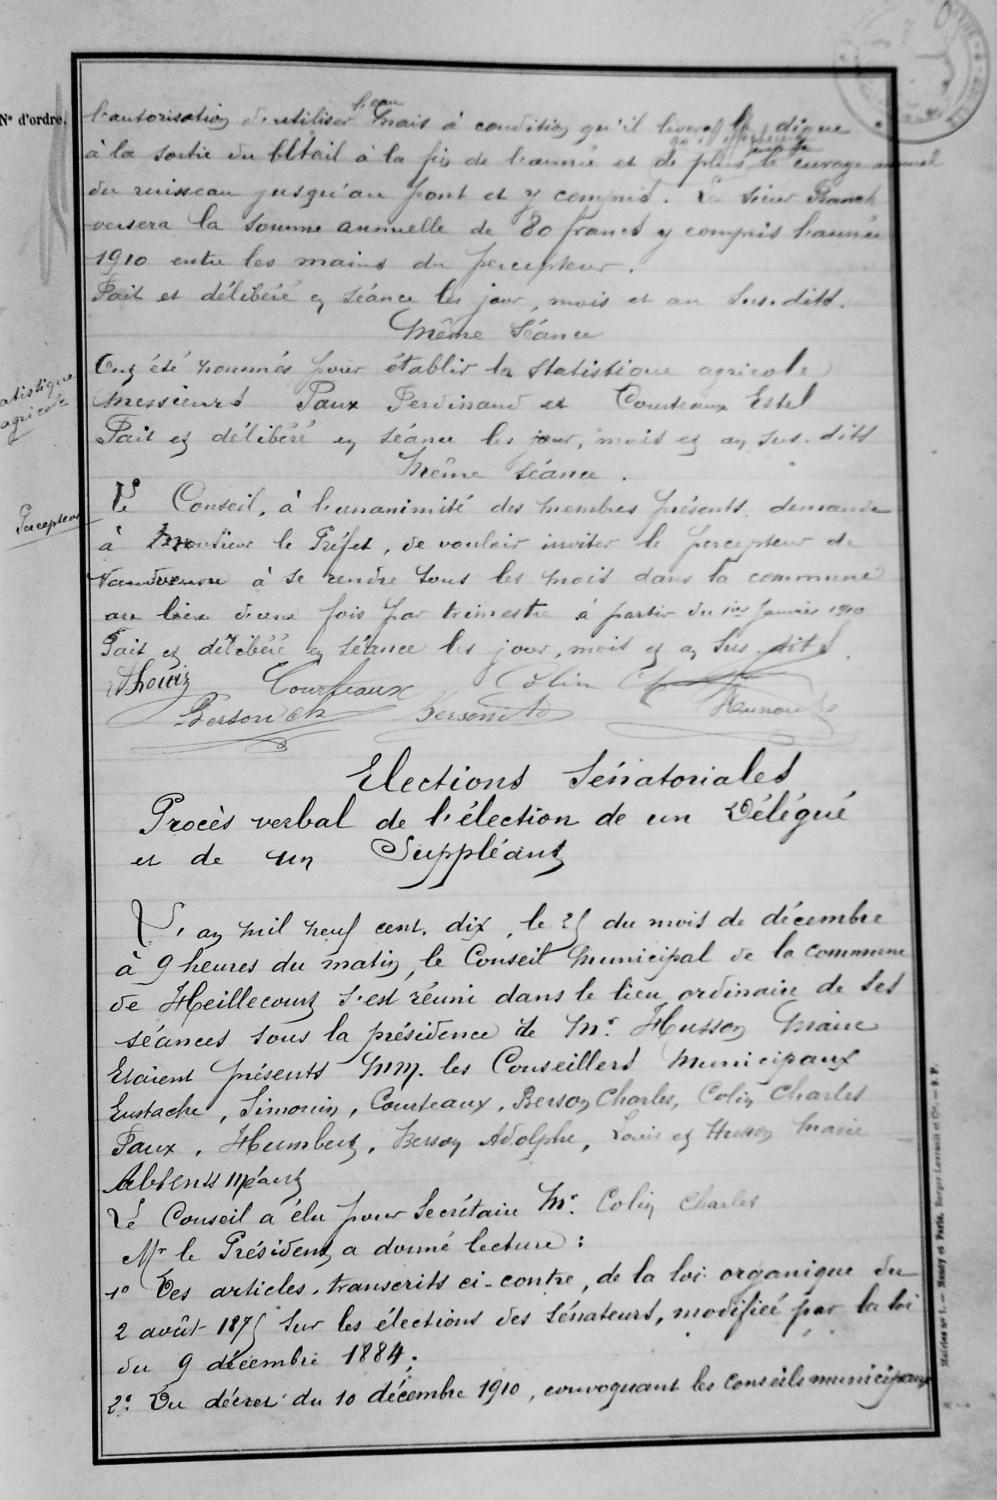 N° d'ordre.
l'autorisation d'utiliser l'eau mais à condition qu'il digue
à la sortie du bétail à la fin de l'année et de plus le curage annuel
du ruisseau jusqu'au pont et y compris. Le sieur
versera la somme annuelle de 80 francs y compris l'année
1910 entre les mains du percepteur.
Fait et délibéré en séance les jour, mois et an sus-dits.
Même séance
Statistique agricole
Ont été nommés pour établir la statistique agricole
Messieurs Paux Ferdinand et Courteaux Estel
Fait et délibéré en séance les jour, mois et an sus-dits
Même séance.
Percepteur
Le Conseil, à l'unanimité des membres présents, demande
à Monsieur le Préfet, de vouloir inviter le percepteur de
à se rendre tous les mois dans la commune
au lieu d'une fois par trimestre à partir du 1er Janvier 1910
Fait et délibéré en séance les jour, mois et an sus-dits.
Courteaux Colin
Berson ch Berson
Elections Sénatoriales
Procès verbal de l'élection de un Délégué
et de un Suppléant
L'an mil neuf cent dix, le 25 du mois de décembre
à 9 heures du matin, le Conseil Municipal de la commune
de Heillecourt s'est réuni dans le lieu ordinaire de ses
séances sous la présidence de Mr. Husson Maire
Etaient présents MM. les Conseillers Municipaux
Eustache, Simonin, Courteaux, Berson Charles, Colin Charles
Paux, Humbert, Berson Adolphe, Louis et Husson Maire
Absents Néant
Le Conseil a élu pour Secrétaire Mr. Colin Charles
Mr le Président a donné lecture :
1° Des articles, transcrits ci-contre, de la loi organique du
2 août 1875 sur les élections des Sénateurs, modifiée par la loi
du 9 décembre 1884;
2° Du décret du 10 décembre 1910, convoquant les conseils municipaux
Mairies n° 1. — Nancy et Paris, Berger-Levrault et Cie. — S. P.